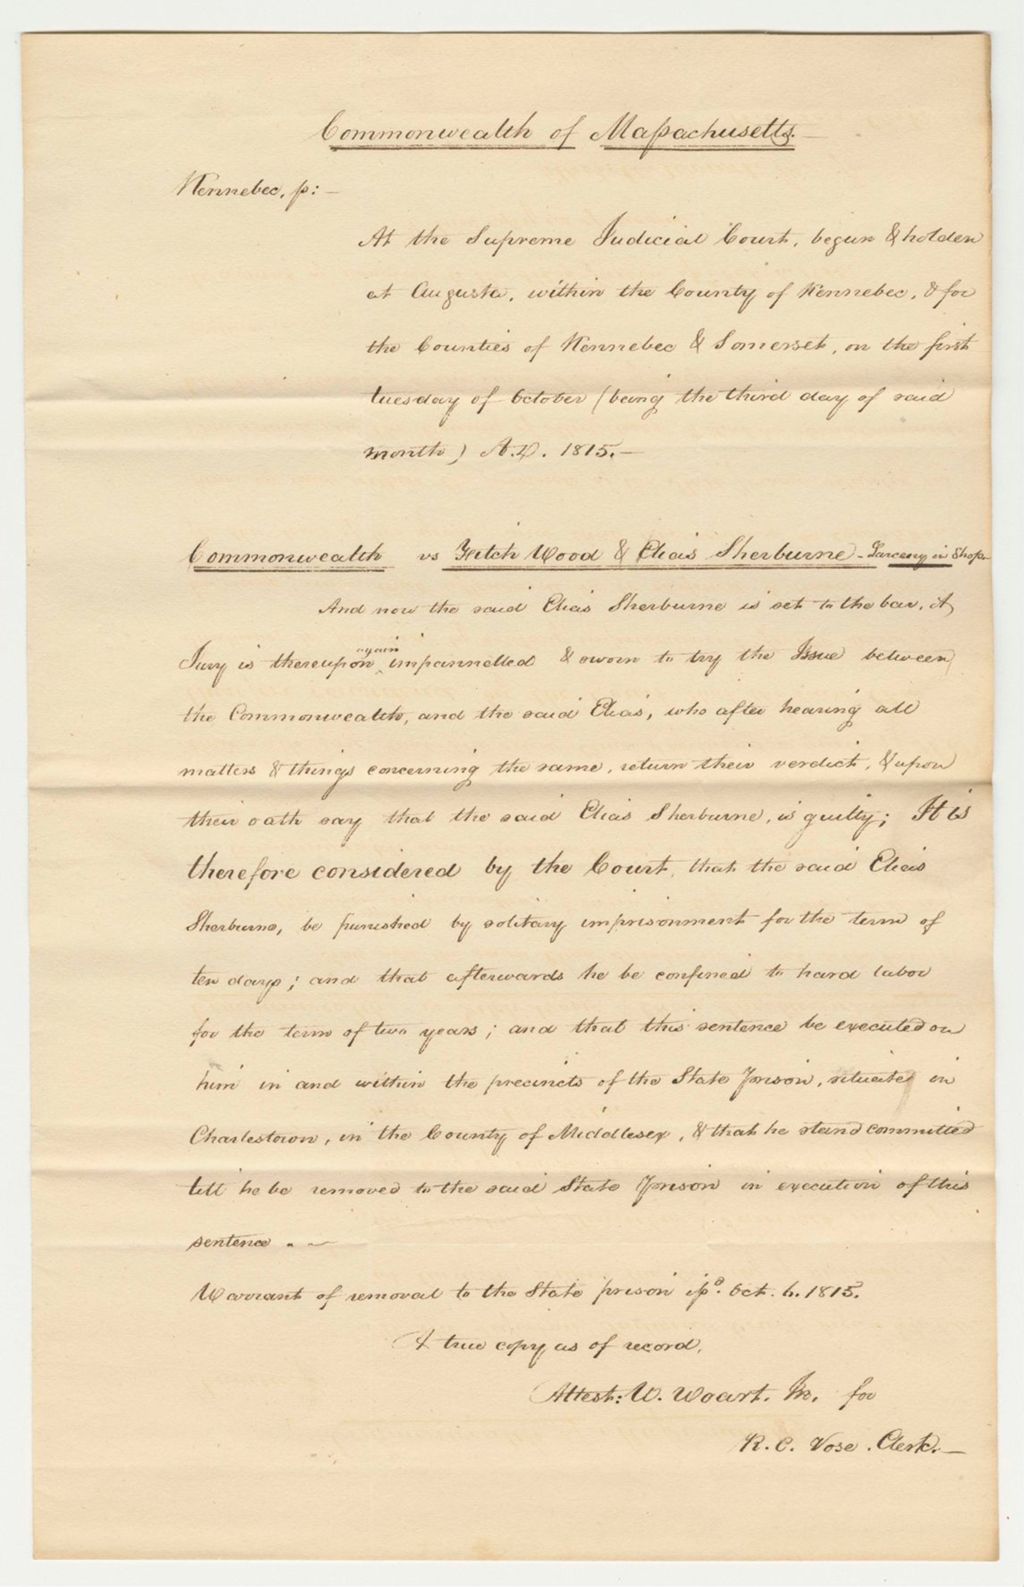 Commonwealth of Massachusetts.—
Kennebec, ss:—
At the Supreme Judicial Court, begun & holden
at Augusta, within the County of Kennebec, & for
the Counties of Kennebec & Somerset, on the first
tuesday of October (being the third day of said
month) A.D. 1815.—
Commonwealth vs Fitch Wood & Elias Sherburne - Larceny in Shop
And now the said Elias Sherburne is set to the bar, A
Jury is thereupon again impannelled & sworn to try the Issue between
the Commonwealth, and the said Elias, who after hearing all
matters & things concerning the same, return their verdict, & upon
their oath say that the said Elias Sherburne, is guilty; It is
therefore considered by the Court, that the said Elias
Sherburne, be punished by solitary imprisonment for the term of
ten days; and that afterwards he be confined to hard labor
for the term of two years; and that this sentence be executed on
him in and within the precincts of the State Prison, situate in
Charlestown, in the County of Middlesex, & that he stand committed
till he be removed to the said State Prison in execution of this
sentence. —
Warrant of removal to the State prison issd. Oct. 6. 1815.
A true copy as of record,
Attest: W. Woart. Jr. for
R. C. Vose. Clerk.—